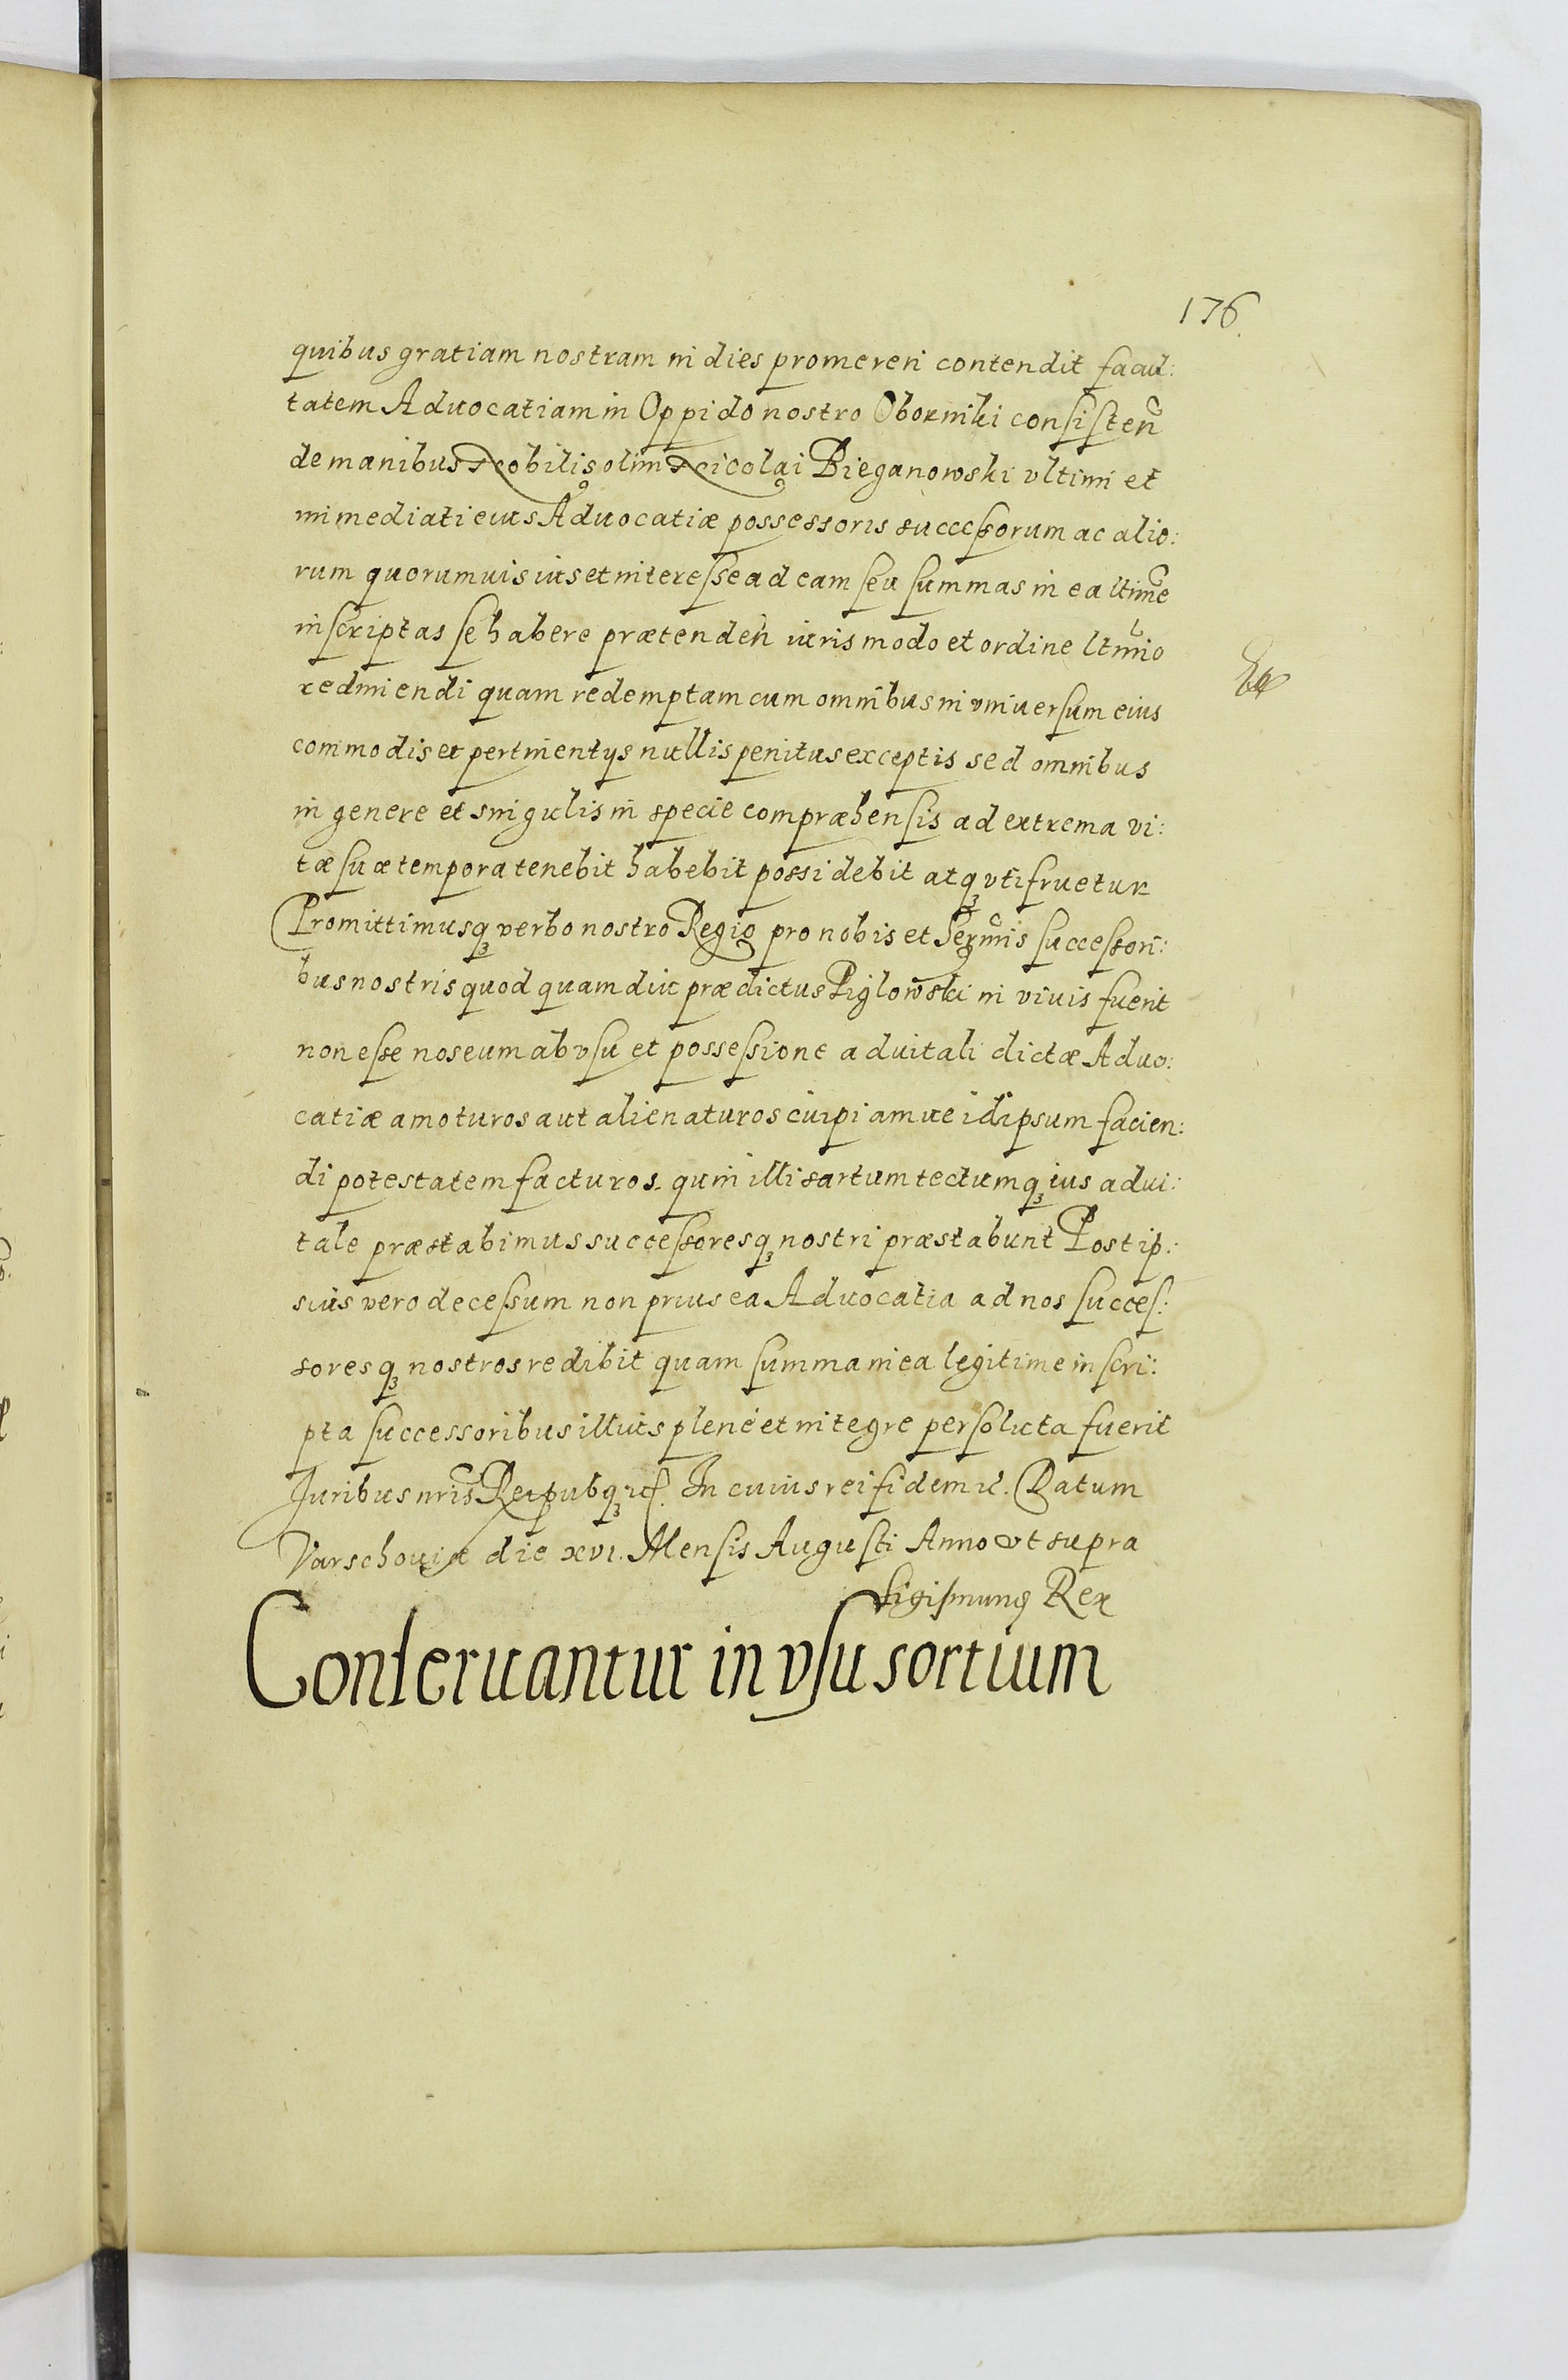 176.
quibus gratiam nostram in dies promereri contendit facul:
tatem Advocatiam in Oppido nostro Oborniki consisten̄
de manibus Nobilis olim Nicolai Bieganowski vltimi et
immediati eius Advocatiæ possessoris successorum ac alio:
rum quorumuis ius et interesse ad eam seu summas in ea ltim̄e
inscriptas se habere prætenden̄ iuris modo et ordine ltm̄io
redimiendi quam redemptam cum omnibus in vniuersum eius
commodis et pertinentijs nullis penitus exceptis sed omnibus
in genere et singulis in specie compræhensis ad extrema vi:
tæ suæ tempora tenebit habebit possidebit atqꝫ vtifruetur
Promittimusqꝫ verbo nostro Regio pro nobis et Serm̄is successori:
bus nostris quod quam diu prædictus Piglowski in viuis fuerit
non esse nos eum ab vsu et possessione aduitali dictæ Aduo:
catiæ amoturos aut alienaturos cuipiamue id ipsum facien:
di potestatem facturos. quin illi sartum tectumqꝫ ius adui:
tale præstabimus successoresqꝫ nostri præstabunt Post ip:
sius vero decessum non prius ea Aduocatia ad nos succes:
soresqꝫ nostros redibit quam summa in ea legitime inscri:
pta successoribus illius plene et integre persoluta fuerit
Juribus nr̄is Reipubqꝫ In cuius rei fidem Datum
Varschouiæ die xvi. Mensis Augusti Anno vt supra
Sigismunꝰ Rex
Conseruantur in vsu sortium